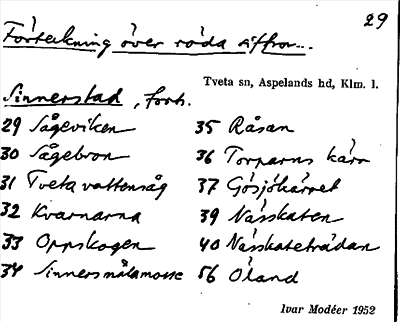 29
Förteckning över röda siffror...
Tveta sn, Aspelands hd, Klm. l.
Sinnerstad, forts.
29 Sågeviken 35 Råsan
30 Sågebron 36 Torparns kärr
31 Tveta vattensåg 37 Gösjökärret
32 Kvarnarna 39 Nässkaten
33 Oppskogen 40 Nässkateträdan
34 Sinnersmålamosse 56 Öland
Ivar Modéer 1952